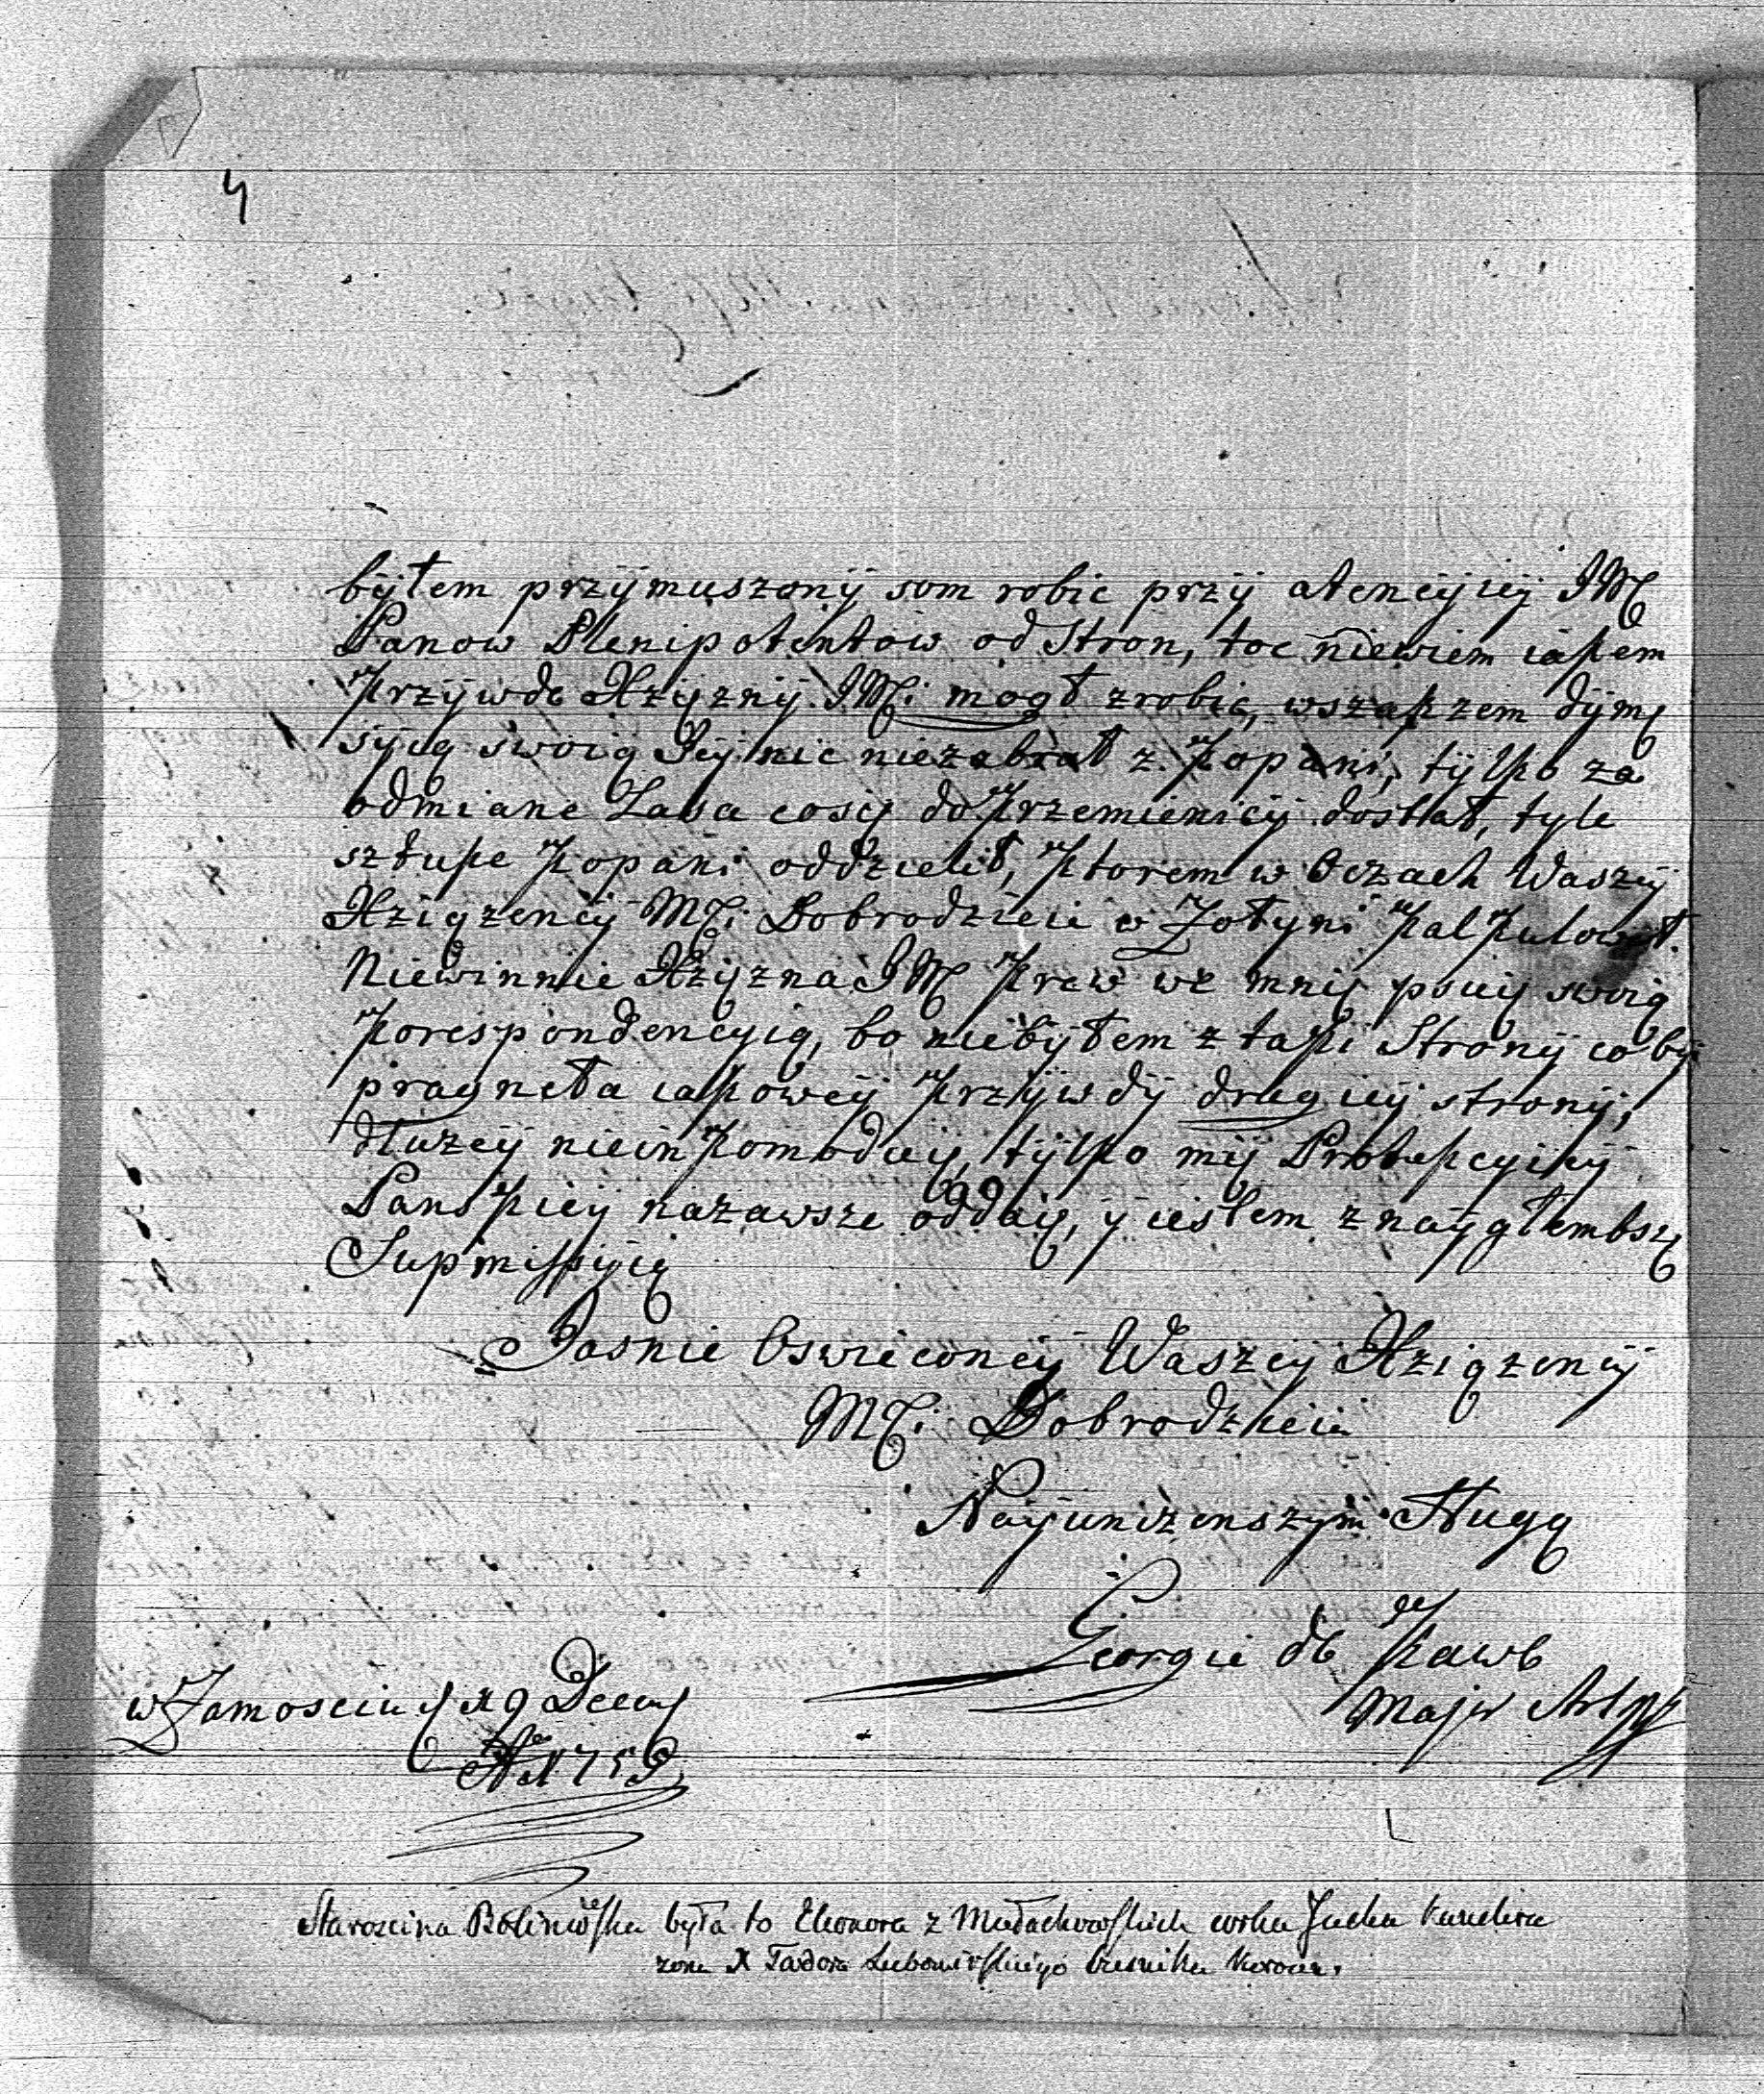 4
byłem przymuszony som robic przy atencyiey JM
Panow Plenipotentow od Stron, toc niewiem iakem
krzywde Xzyzny JMCi mogł zrobic, wszakzem dym
syią swoią Jey nic niezabrał z Kopani, tylko za
odmiane Lasa cosy do Krzemienicy dostał, tyle
sztuke Kopani oddzielił, ktorem w Oczach Waszey
Xziązency MCi Dobrodzieia w Zołyni kalkulował.
Niewinnie Xzyzna JM krew we mnie psuiy swoią
korespondencyią, bo niebyłem z taki Strony co by
pragneła iakowey krzywdy drugiey strony,
dłuzey nieinkomoduiy, tylko my Protekcyiey
Panskiey nazawsze oddaiy, y iestem z nayglembszą
Supmissyią
Jasnie Oswieconey Waszey Xziązency
MCi Dobrodzieia
Nayunizenszym Sługą
Georgie de Kawe
Major Art
w Zamosciu d 19 Decem
Ao 175
Starościna Bolimowska była to Eleonora z Małachowskich córka Jacka Kanclerza
żona X Teodora Lubomirskiego Cześnika Koron.